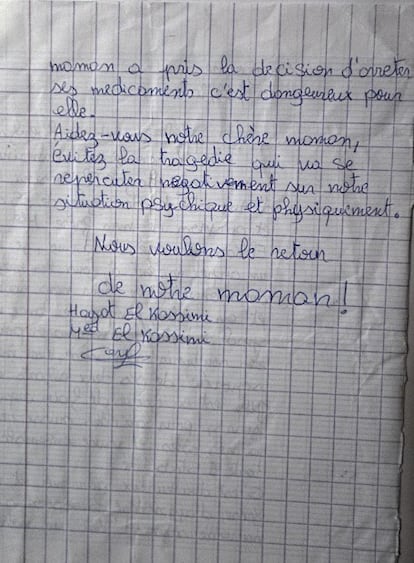 maman a pris la decision d'arreter
ses medicaments c'est dangeureux pour
elle.
Aidez-vous notre chère maman,
évitez la tragedie qui va se
reperculer négativement sur notre
situation psychique et physiquement.
Nous voulions le retour
de notre maman!
Hayat El Kassimi
Med El Kassimi